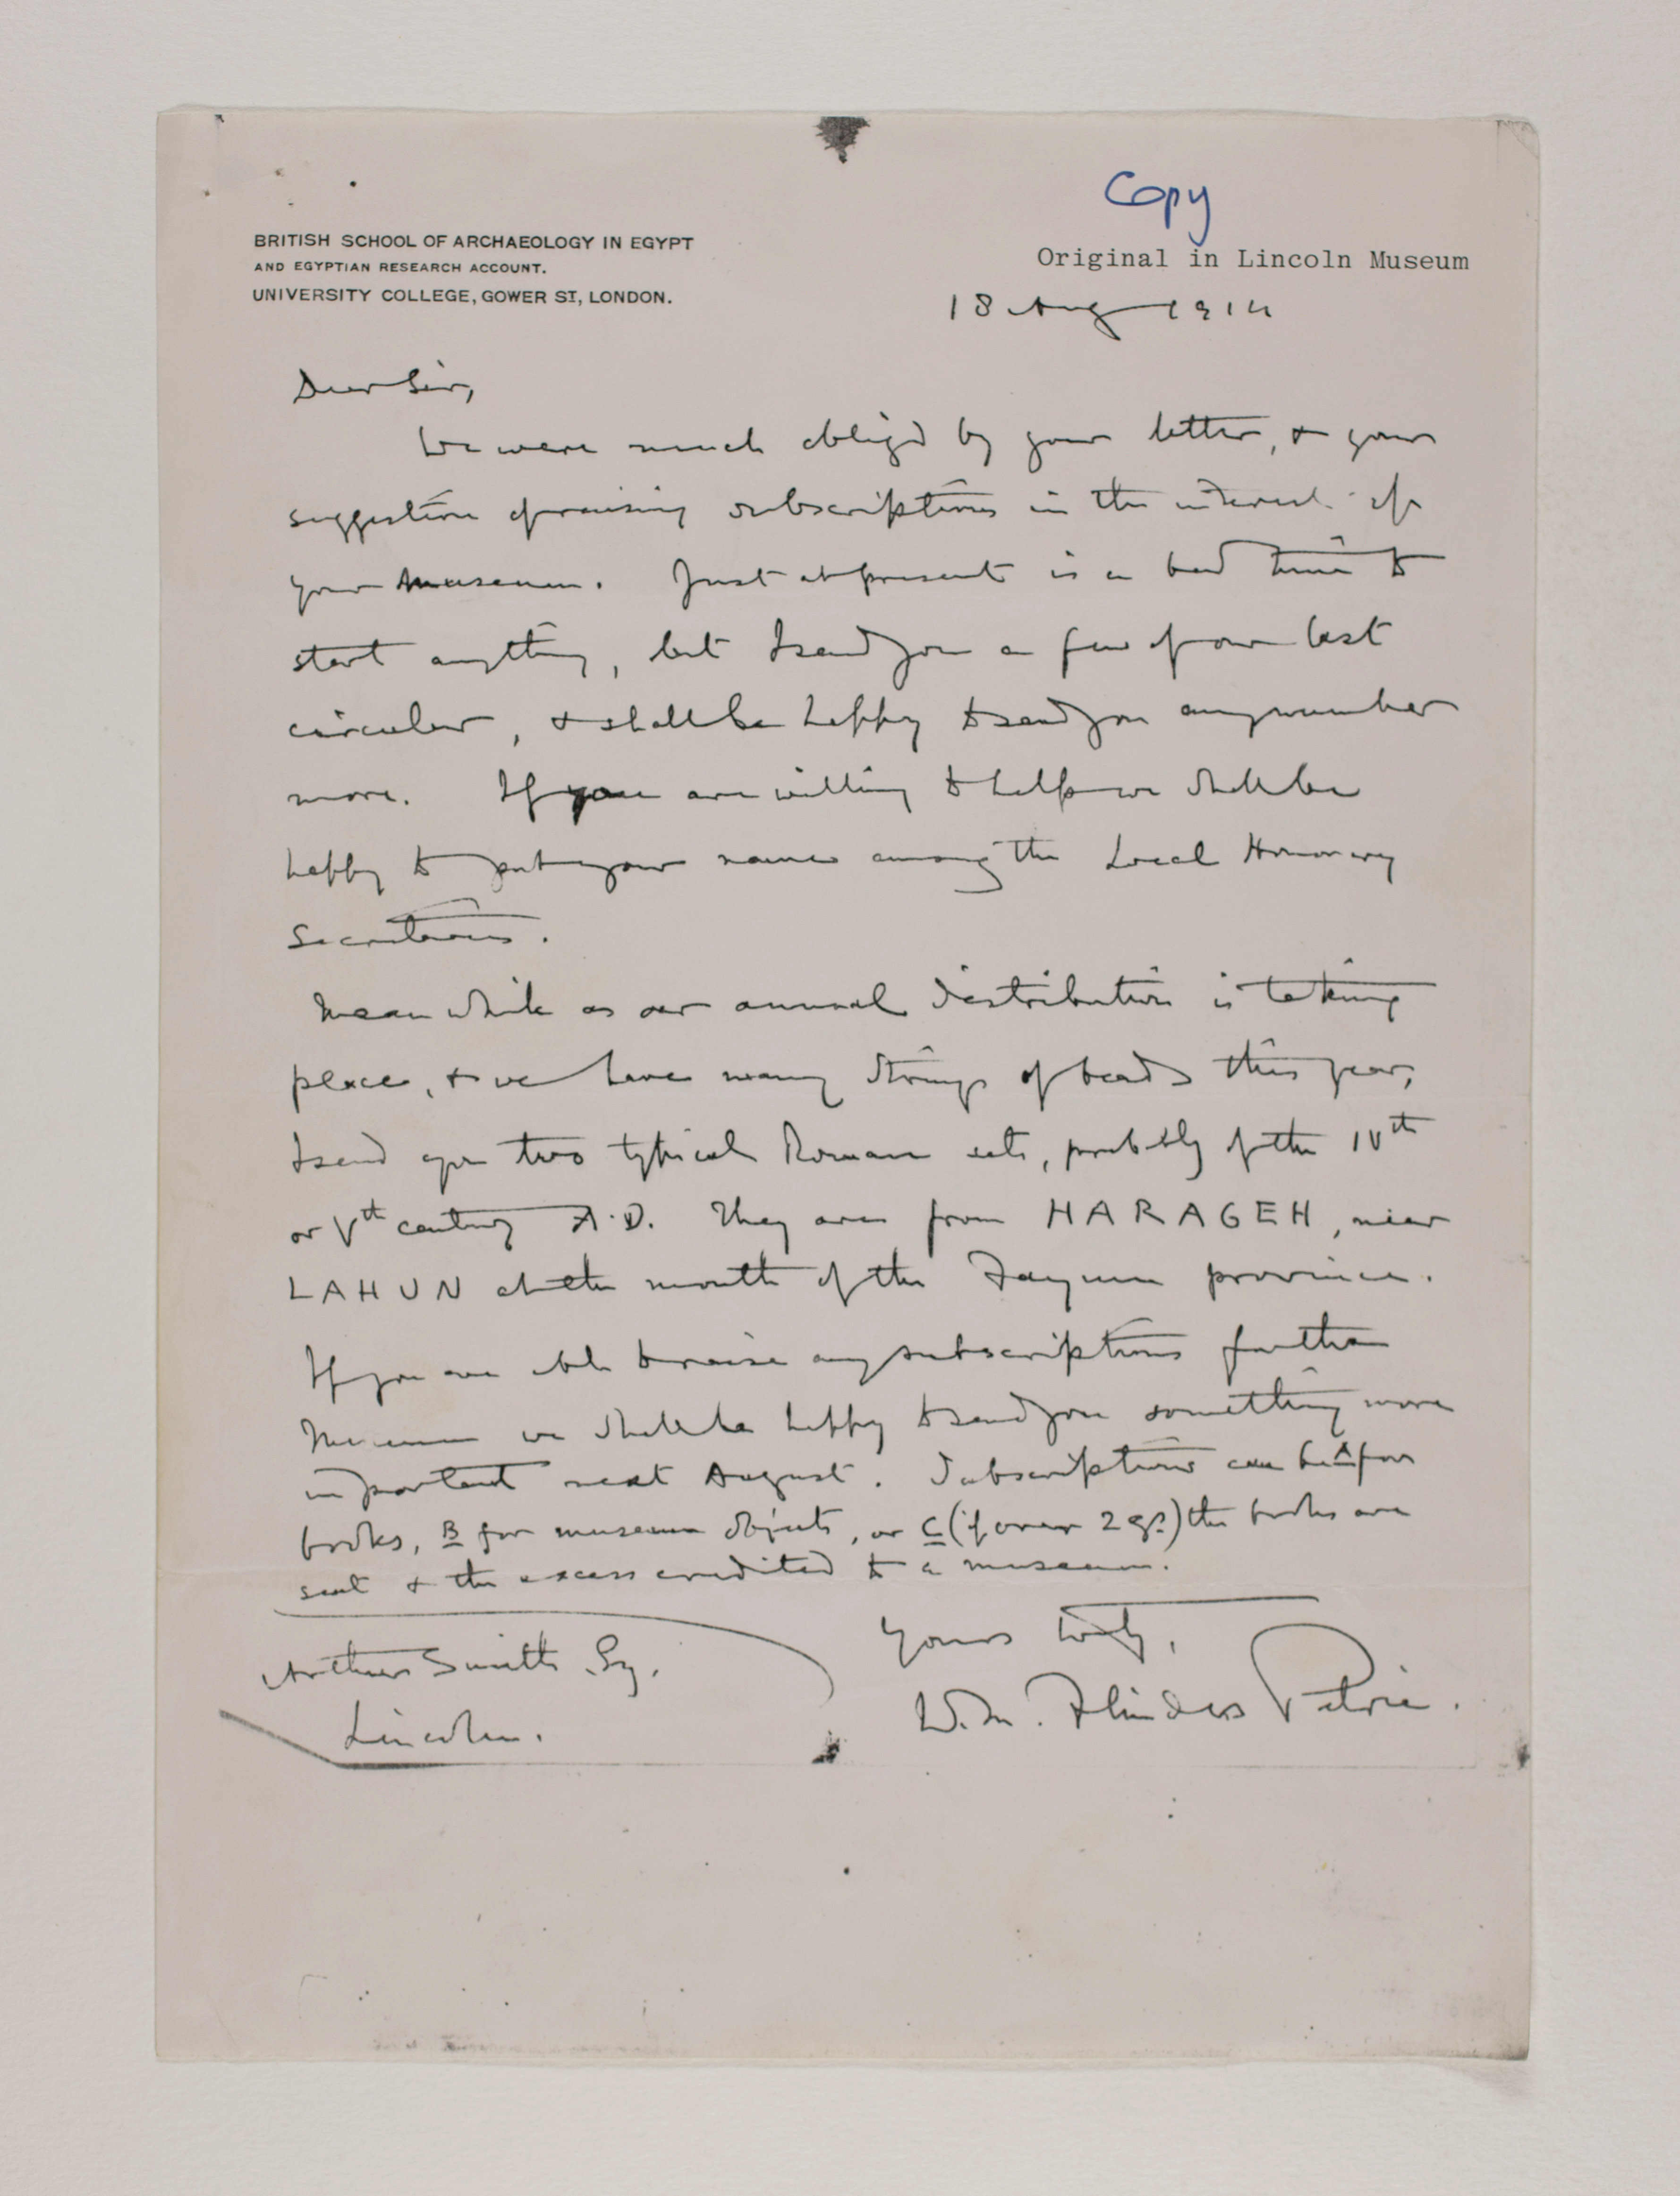 Copy
BRITISH SCHOOL OF ARCHAEOLOGY IN EGYPT
AND EGYPTIAN RESEARCH ACCOUNT.
UNIVERSITY COLLEGE, GOWER ST, LONDON.
Original in Lincoln Museum
18 Aug 1914
Dear Sir,
We were much obliged by your letter, & your
suggestion of raising subscriptions in the interest of
your museum. Just at present is a bad time to
start anything, but I send you a few of our last
circular, & shall be happy to send you any number
more. If you are willing to help we shall be
happy to put your name among the Local Honorary
Secretaries.
Meanwhile as our annual distribution is taking
place, & we have many strings of beads this year,
I send you two typical Roman sets, probably of the IVth
or Vth century A.D. They are from HARAGEH, near
LAHUN at the mouth of the Fayum province.
If you are able to raise any subscriptions for the
Museum we shall be happy to send you something more
important next August. Subscriptions can be A for
books, B for museum objects, or C (if over 2 gs.) the books are
sent & the excess credited to a museum.
Yours truly,
Arthur Smith Esq.
Lincoln.
W. M. Flinders Petrie.